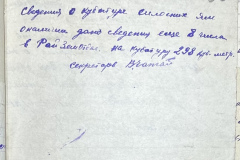 Сведения о кубатуре силосных ям
даны сведения еще 8 числа
в РайЗемотдел. на кубатуру 298 куб. метр.
секретарь